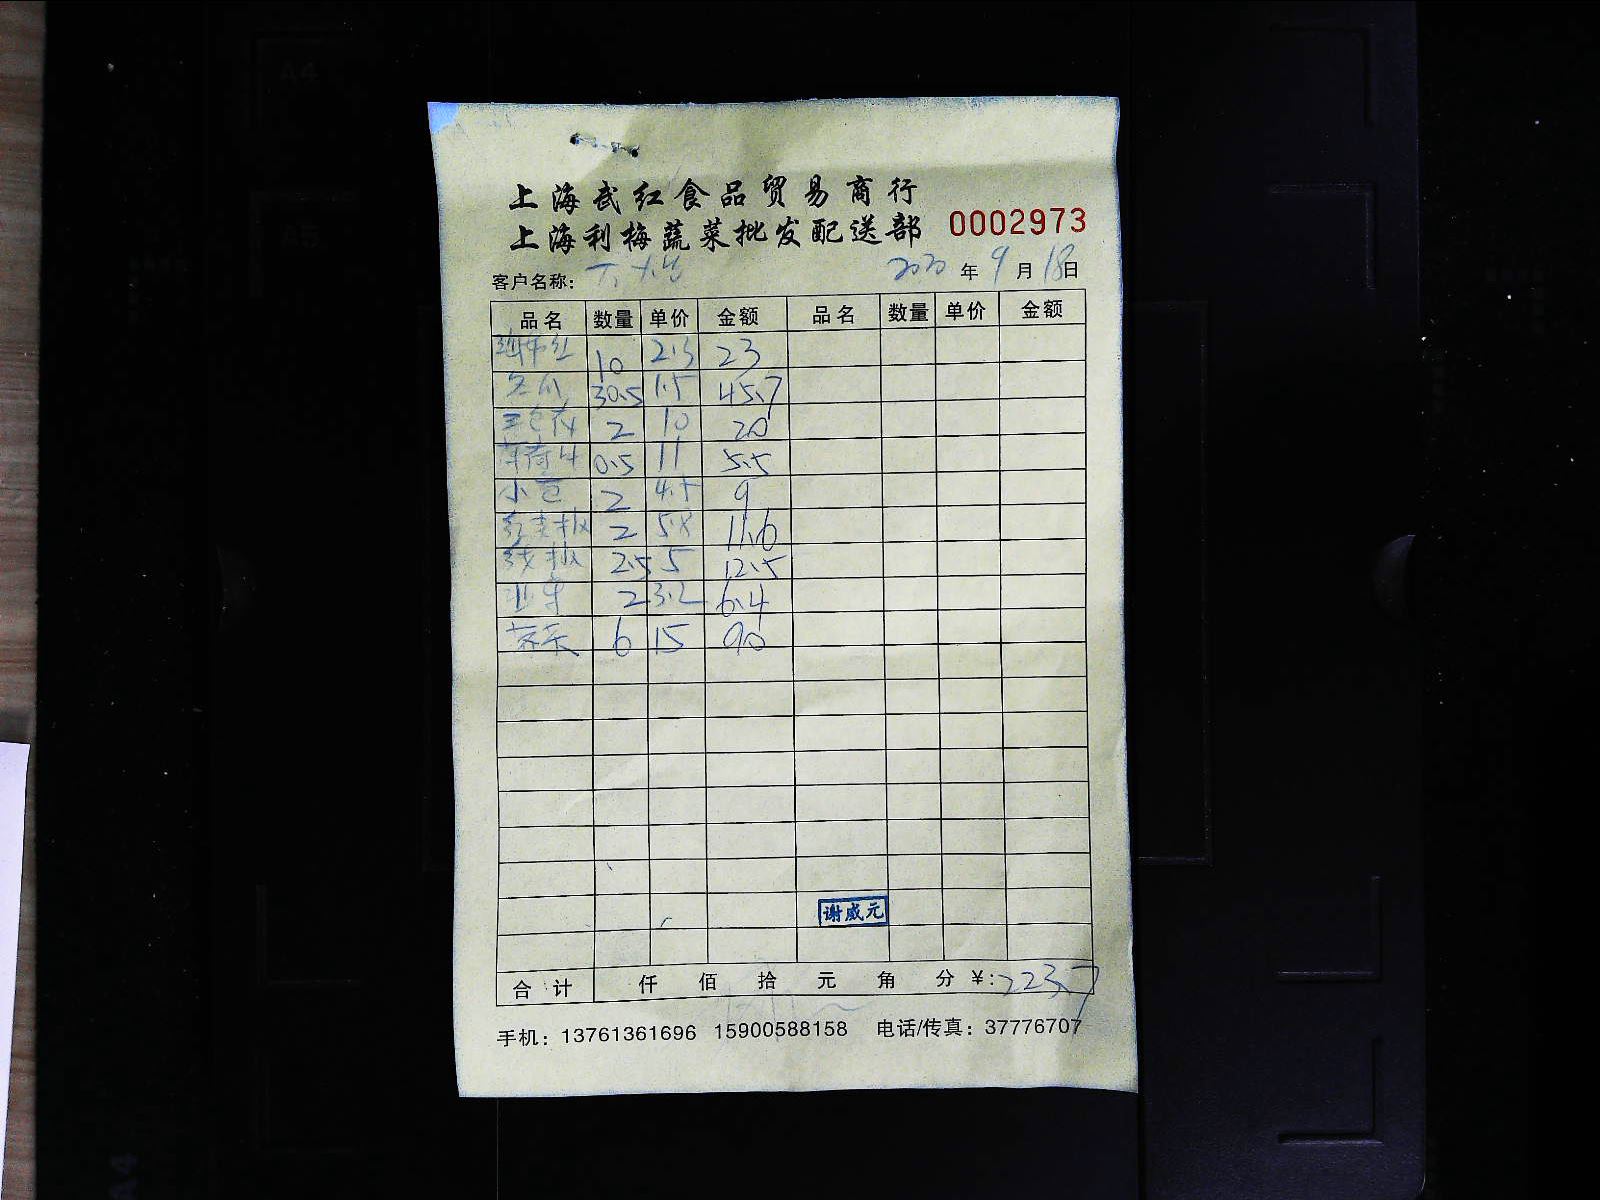 上海武红食品贸易商行
上海利梅蔬菜批发配送部 0002973
客户名称： 2020 年 9 月 18 日
品名 数量 单价 金额 品名 数量 单价 金额
10 2.3 23
冬瓜 30.5 1.5 45.7
三色 2 10 20
薄荷叶 0.5 11 5.5
小 2 4.5 9
红尖椒 2 5.8 11.6
线椒 2.5 5 12.5
2 3.2 6.4
6 15 90
谢威元
合计 仟 佰 拾 元 角 分 ¥: 223.7
手机：13761361696 15900588158 电话/传真：37776707